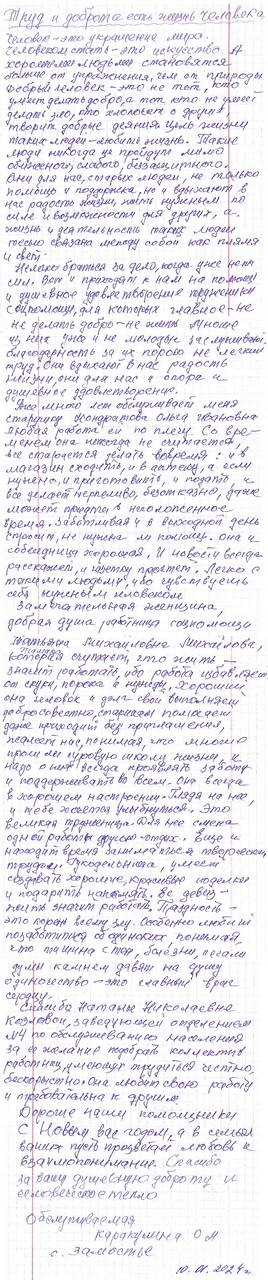 Труд и доброта есть жизнь человека
Человек - это украшение мира.
Человеком стать - это искусство. А
хорошими людьми становятся
больше от упражнения, чем от природы
Добрый человек - это не тот, кто
умеет делать добро, а тот кто не умеет
делать зло, кто хлопочет о других,
творит добрые деяния. Цель жизни
таких людей - любить жизнь. Такие
люди никогда не пройдут мимо
обиженного, слабого, беззащитного.
Они для нас, старых людей, не только
помощь и поддержка, но и вдыхают в
нас радость жизни, жить нужным по
силе и возможности для других, а
жизнь и деятельность таких людей
тесно связана между собой как пламя
и свет.
Нелегко браться за дело, когда уже нет
сил. Вот и приходят к нам на помощь
и душевное удовлетворение труженики
соцпомощи, для которых главное - не
не делать добро - не жить. Многие
из них уже и не молодые заслуживают
благодарность за их порою не легкий
труд. Они вдыхают в нас радость
жизни, они для нас и опора и
душевное удовлетворение.
Уже много лет обслуживает меня
старушку Кондрастова Ольга Ивановна
Любая работа ей по плечу. Со вре-
менем она никогда не считается,
все старается делать вовремя: и в
магазин сходить, и в аптеку, а если
нужно, и приготовить, и подать, и
все делает терпеливо, безотказно, даже
может придти в неположенное
время. Заботливая и в выходной день
спросит, не нужна ли помощь. Она и
собеседница хорошая. И новости всегда
расскажет, и газетку прочтет. Легко с
такими людьми, ибо чувствуешь
себя нужным человеком.
Замечательная женщина,
добрая душа, работница соцпомощи
Татьяна Михайловна Михайлова,
которая считает, что жить -
значит работать, ибо работа избавляет
от скуки, порока и нужды. Хороший
она человек и долг свой выполняет
добросовестно, старикам помогает
даже приходит без приглашения,
жалеет нас, понимая, что много
прожили суровую школу жизни, и
надо о них всегда проявлять заботу
и поддерживать во всем. Она всегда
в хорошем настроении. Глядя на нее,
и тебе хочется улыбнуться. Это
великая труженица. Для нее смена
одной работы другою - отдых. Еще и
находит время заниматься творческим
трудом. Рукодельница, умеет
создавать хорошие, красивые поделки
и подарить накормить. Ее девиз -
жить значит работать. Праздность -
это корень всему злу. Особенно любит
позаботиться об одиноких понимая,
что тишина стен, болезни, печали
думы камнем давят на душу
одиночество - это главный враг
сердцу.
Спасибо Наталье Николаевне
Козловой, заведующей отделением
№4 по обслуживанию населения
за ее желание подобрать коллектив
работниц, умеющих трудиться честно,
бескорыстно. Она любит свою работу
и требовательна к другим.
Дорогие наши помощники
С Новым вас годом, а в семьях
ваших пусть процветает любовь и
взаимопонимание. Спасибо
за вашу душевную доброту и
человеческое тепло
Обслуживаемая
Каракулина О М
с. Замостье
10.01.2024 г